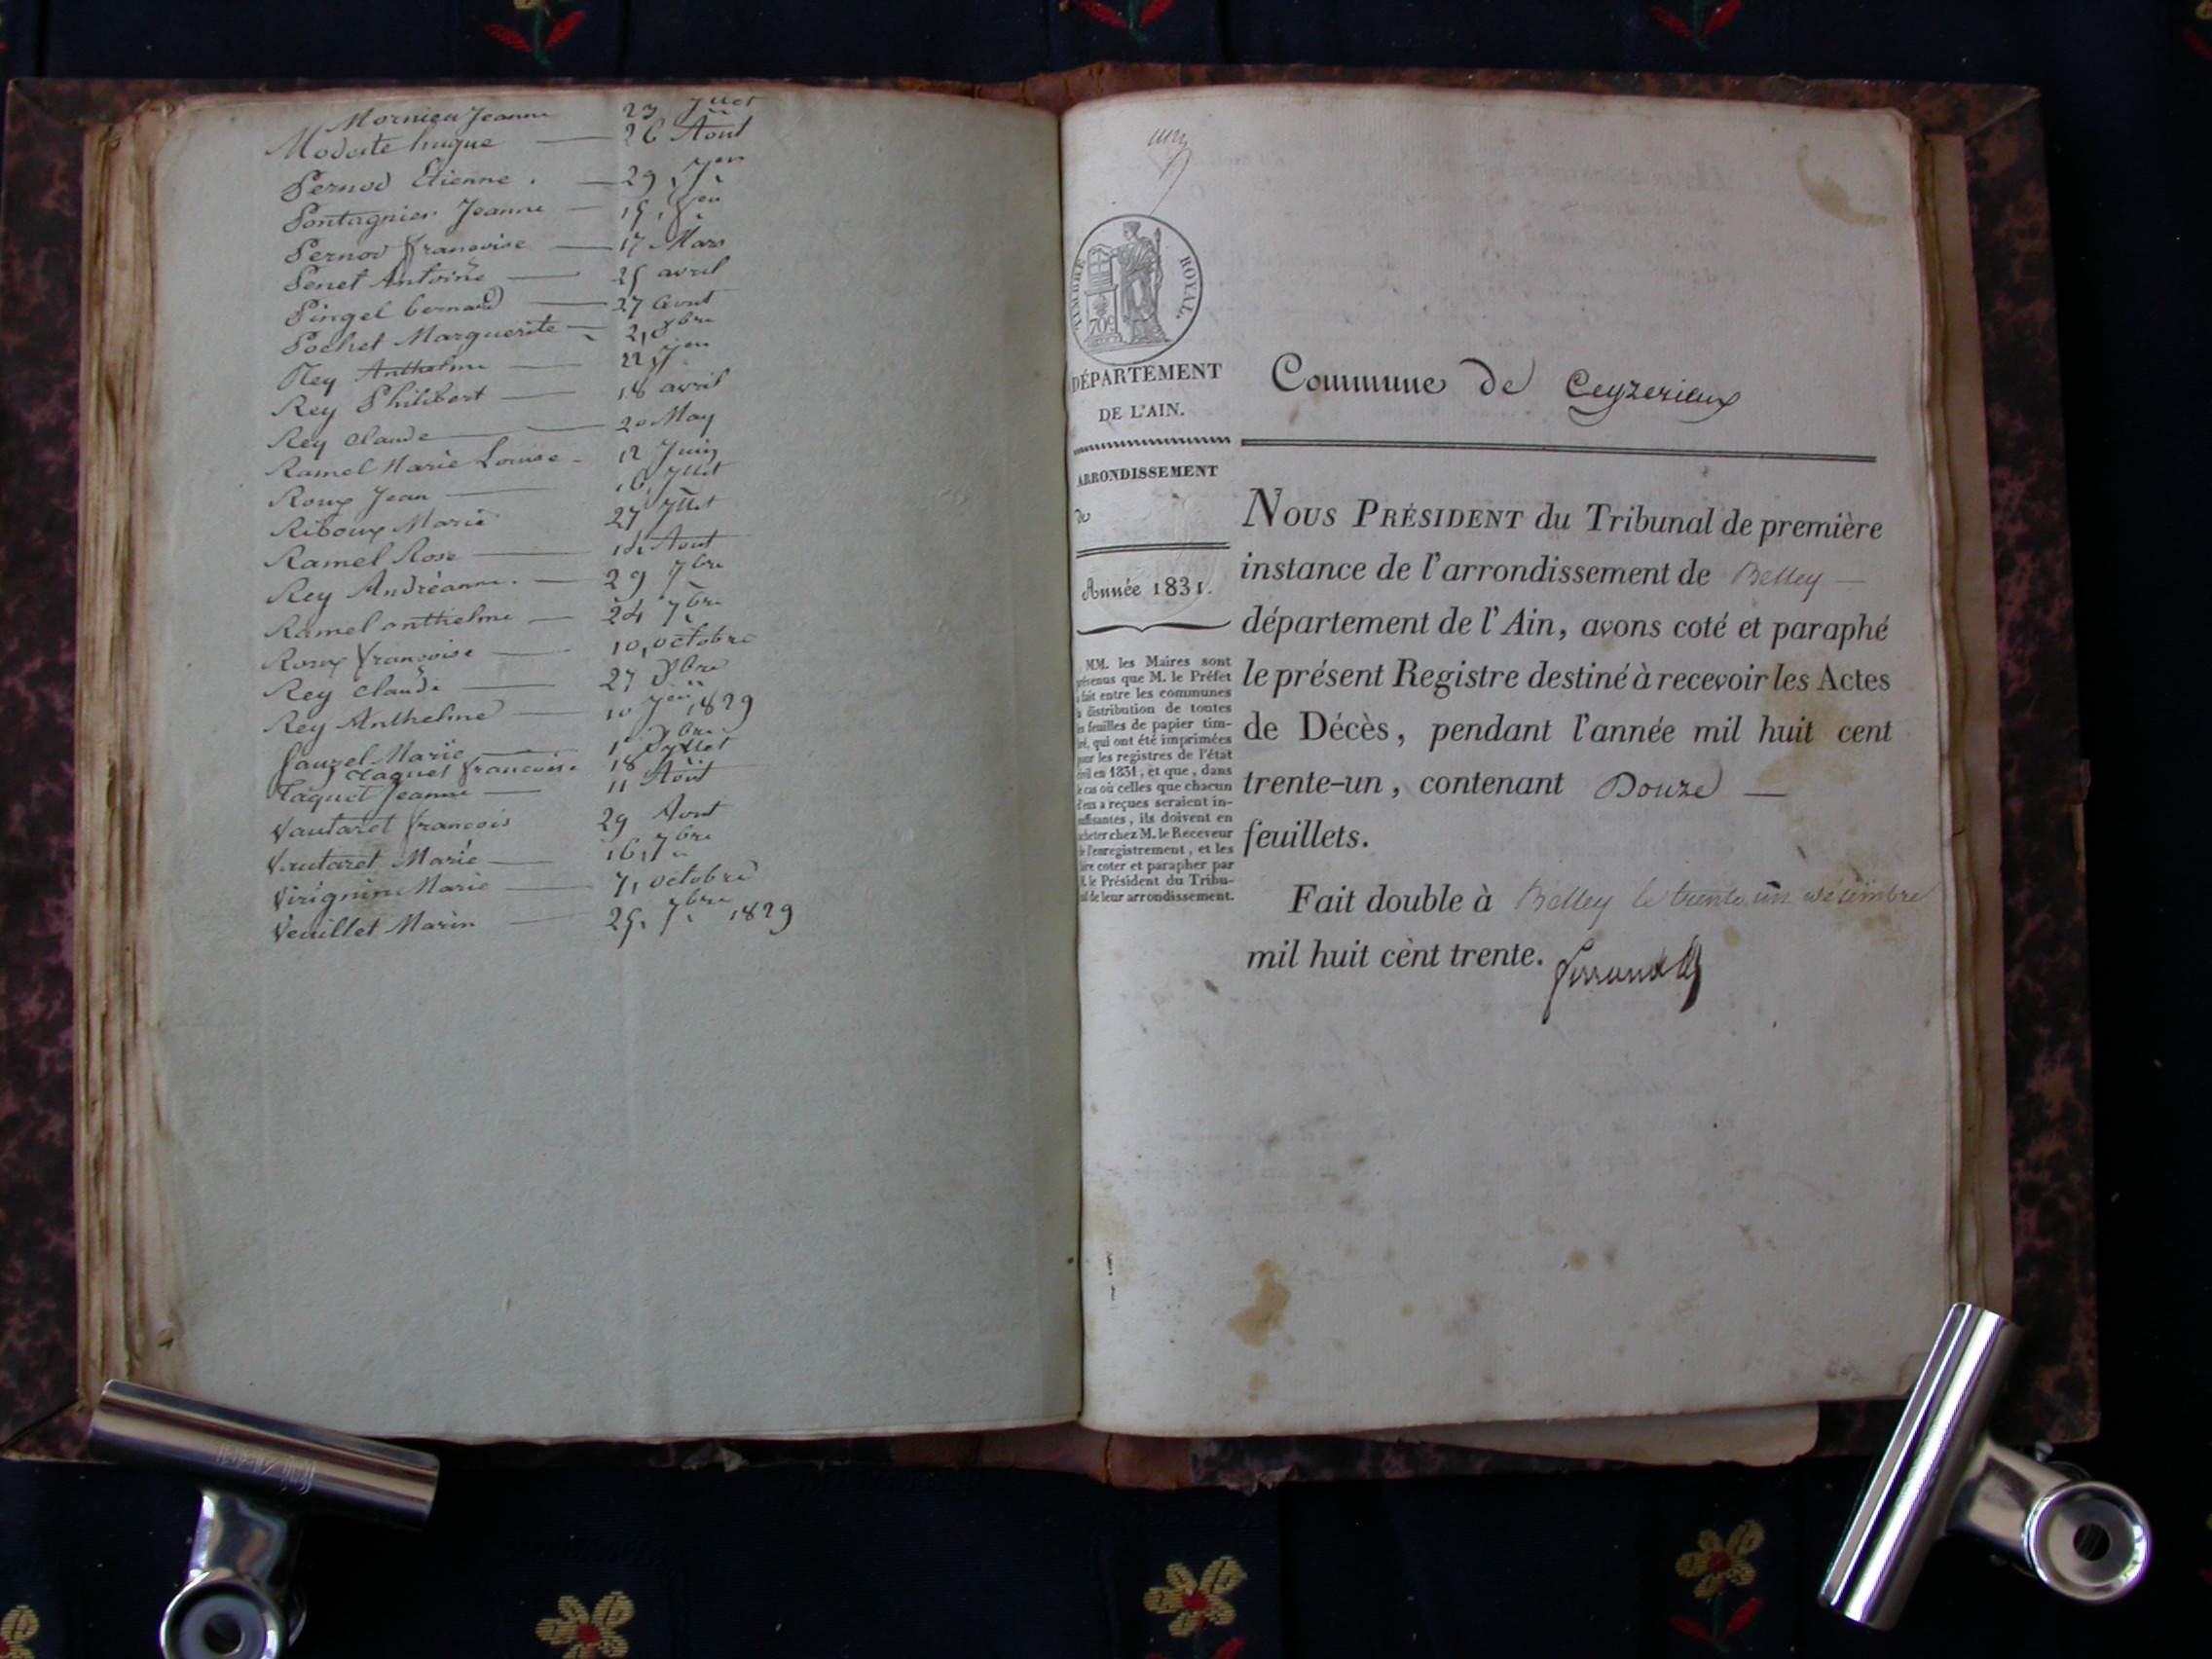 Mornieu Jeanne 23 Jllet
Modeste hugue — 26 Aout
Pernod Etienne . — 29, Jer
Pontagnier Jeanne — 15,
Pernod françoise — 17 Mars
Penet Antoine — 25 avril
Pingel bernard — 27 avril
Pochet Marguerite — 2, 9bre
Rey Anthelme — 22, Jer
Rey Philibert — 18 avril
Rey Claude — 20 May
Ramel Marie Louise - 12 Juin
Roux Jean — 16, Jllet
Riboux Marie 27 Jllet
Ramel Rose — 14 Aout
Rey Andréanne. — 29 7bre
Ramel anthelme — 24 7bre
Roux françoise — 10, octobre
Rey claude — 27
Rey Anthelme — 10 Jer 1829
Marie — 1er
françoise 18 Jllet
Taquet Jeanne — 11 Aout
Vautaret françois 29 Aout
Vautaret Marie — 16, 7bre
Virignin Marie — 7, octobre
Veuillet Marin — 25, 7bre 1829
TIMBRE ROYAL.
70c
DÉPARTEMENT
DE L'AIN.
ARRONDISSEMENT
de
Année 1831.
MM. les Maires sont
prévenus que M. le Préfet
a fait entre les communes
la distribution de toutes
les feuilles de papier tim-
bré, qui ont été imprimées
pour les registres de l'état
civil en 1831, et que, dans
le cas où celles que chacun
d'eux a reçues seraient in-
suffisantes, ils doivent en
acheter chez M. le Receveur
de l'enregistrement, et les
faire coter et parapher par
M. le Président du Tribu-
nal de leur arrondissement.
Commune de Ceyzerieux
NOUS PRÉSIDENT du Tribunal de première
instance de l'arrondissement de Belley —
département de l'Ain, avons coté et paraphé
le présent Registre destiné à recevoir les Actes
de Décès, pendant l'année mil huit cent
trente-un, contenant Douze —
feuillets.
Fait double à Belley le trente un décembre
mil huit cent trente.